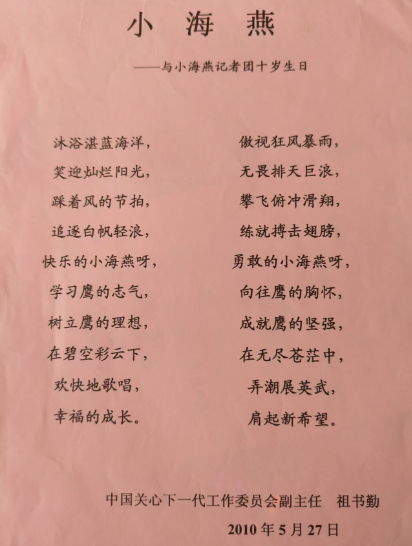 小海燕
——与小海燕记者团十岁生日
沐浴湛蓝海洋，
笑迎灿烂阳光，
踩着风的节拍，
追逐白帆轻浪，
快乐的小海燕呀，
学习鹰的志气，
树立鹰的理想，
在碧空彩云下，
欢快地歌唱，
幸福的成长。
傲视狂风暴雨，
无畏排天巨浪，
攀飞俯冲滑翔，
练就搏击翅膀，
勇敢的小海燕呀，
向往鹰的胸怀，
成就鹰的坚强，
在无尽苍茫中，
弄潮展英武，
肩起新希望。
中国关心下一代工作委员会副主任 祖书勤
2010年5月27日